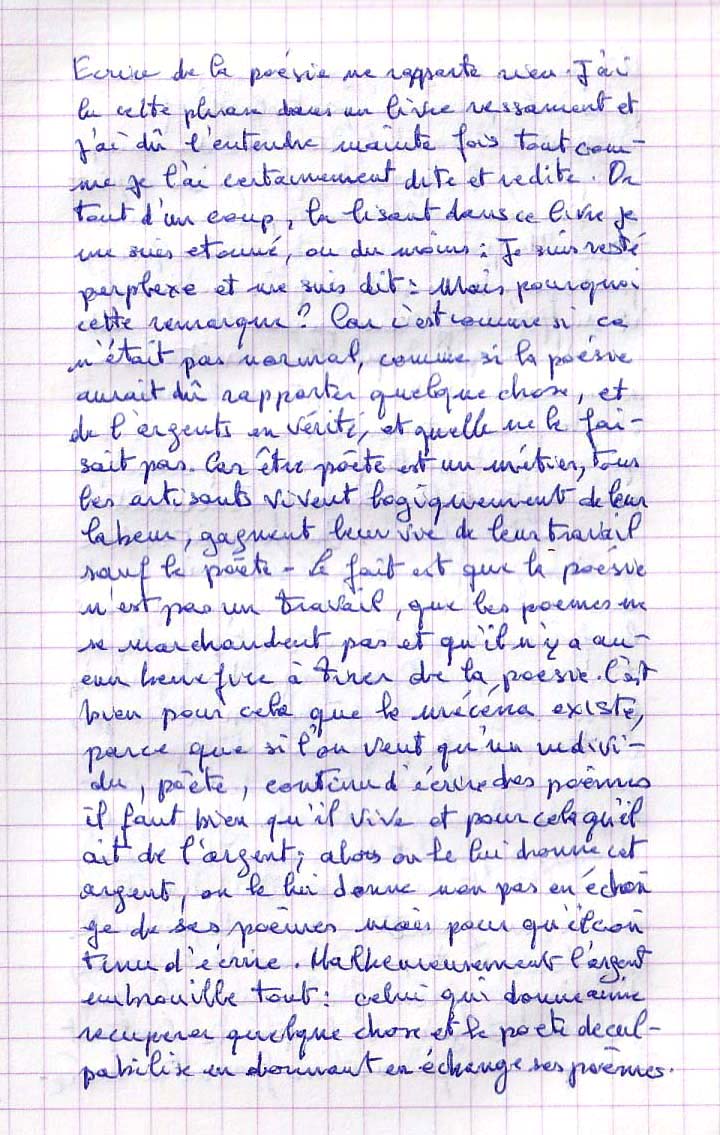 Ecrire de la poésie ne rapporte rien. J'ai
lu cette phrase dans un livre ressament et
j'ai dû l'entendre mainte fois tout com-
me je l'ai certainement dite et redite. Or
tout d'un coup, la lisant dans ce livre je
me suis etonné, ou du moins : Je suis resté
perplexe et me suis dit : Mais pourquoi
cette remarque ? Car c'est comme si ce
n'était pas normal, comme si la poésie
aurait dû rapporter quelque chose, et
de l'argents en vérité, et quelle ne le fai-
sait pas. Car être poète est un métier, tous
les artisants vivent logiquement de leur
labeur, gagnent leur vie de leur travail
sauf le poète - Le fait est que la poésie
n'est pas un travail, que les poemes ne
se marchandent pas et qu'il n'y a au-
cun benefice à tirer de la poesie. C'est
bien pour cela que le mécéna existe,
parce que si l'on veut qu'un individi-
du, poète, continu d'écrire des poèmes
il faut bien qu'il vive et pour cela qu'il
ait de l'argent ; alors on le lui donne cet
argent, on le lui donne non pas en échan
ge de ses poèmes mais pour qu'il con
tinu d'écrire. Malheureusement l'argent
embrouille tout : celui qui donne aime
recuperer quelque chose et le poete decul-
pabilise en donnant en échange ses poèmes.